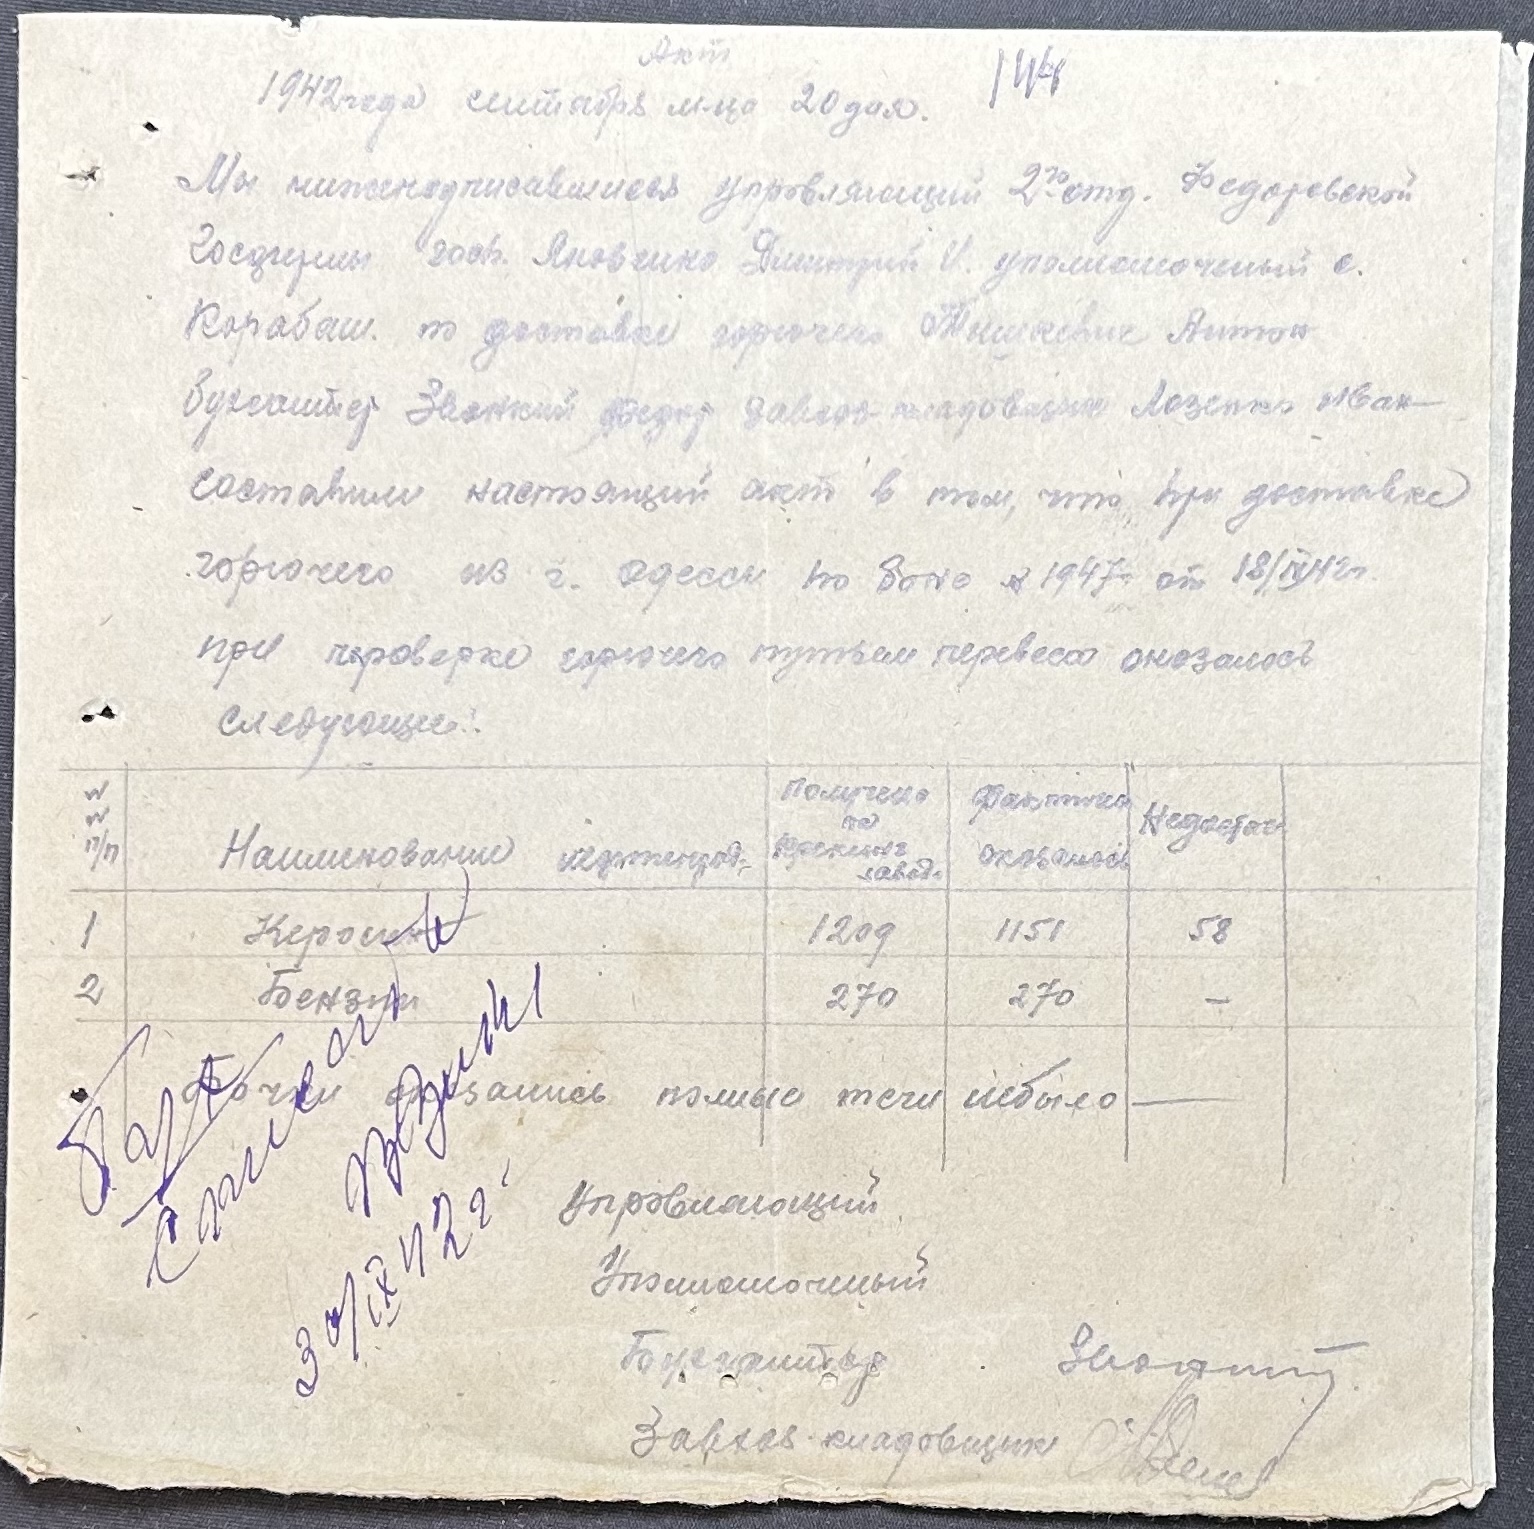 Акт
144
1942 года сентября м-ца 20 дня.
Мы нижеподписавшиеся упровляющий 2го отд. Федоровской
Госфермы госп. Яновенко Дмитрий И. уполномоченый с.
Карабаш. по доставке горючего Тышкевич Антон
Бухгалтер Звонкий Федор завхоз-кладовщик Лозенко Иван
составили настоящий акт в том, что при доставке
горючего из г. Одессы по боне № 1947 от 18/IX 42 г.
при проверке горючего путьем перевеса оказалось
следующее:
№ № п/п
Наименование нефтепрод.
Получено по заявл.
Фактичн оказалось
Недостач
1 Керосин 1209 1151 58
2 Бензин 270 270 —
Бочки оказались полные течи небыло —
30/IX 42 г.
Упровляющий
Упономоченый
Бухгалтер
Завхоз-кладовщик